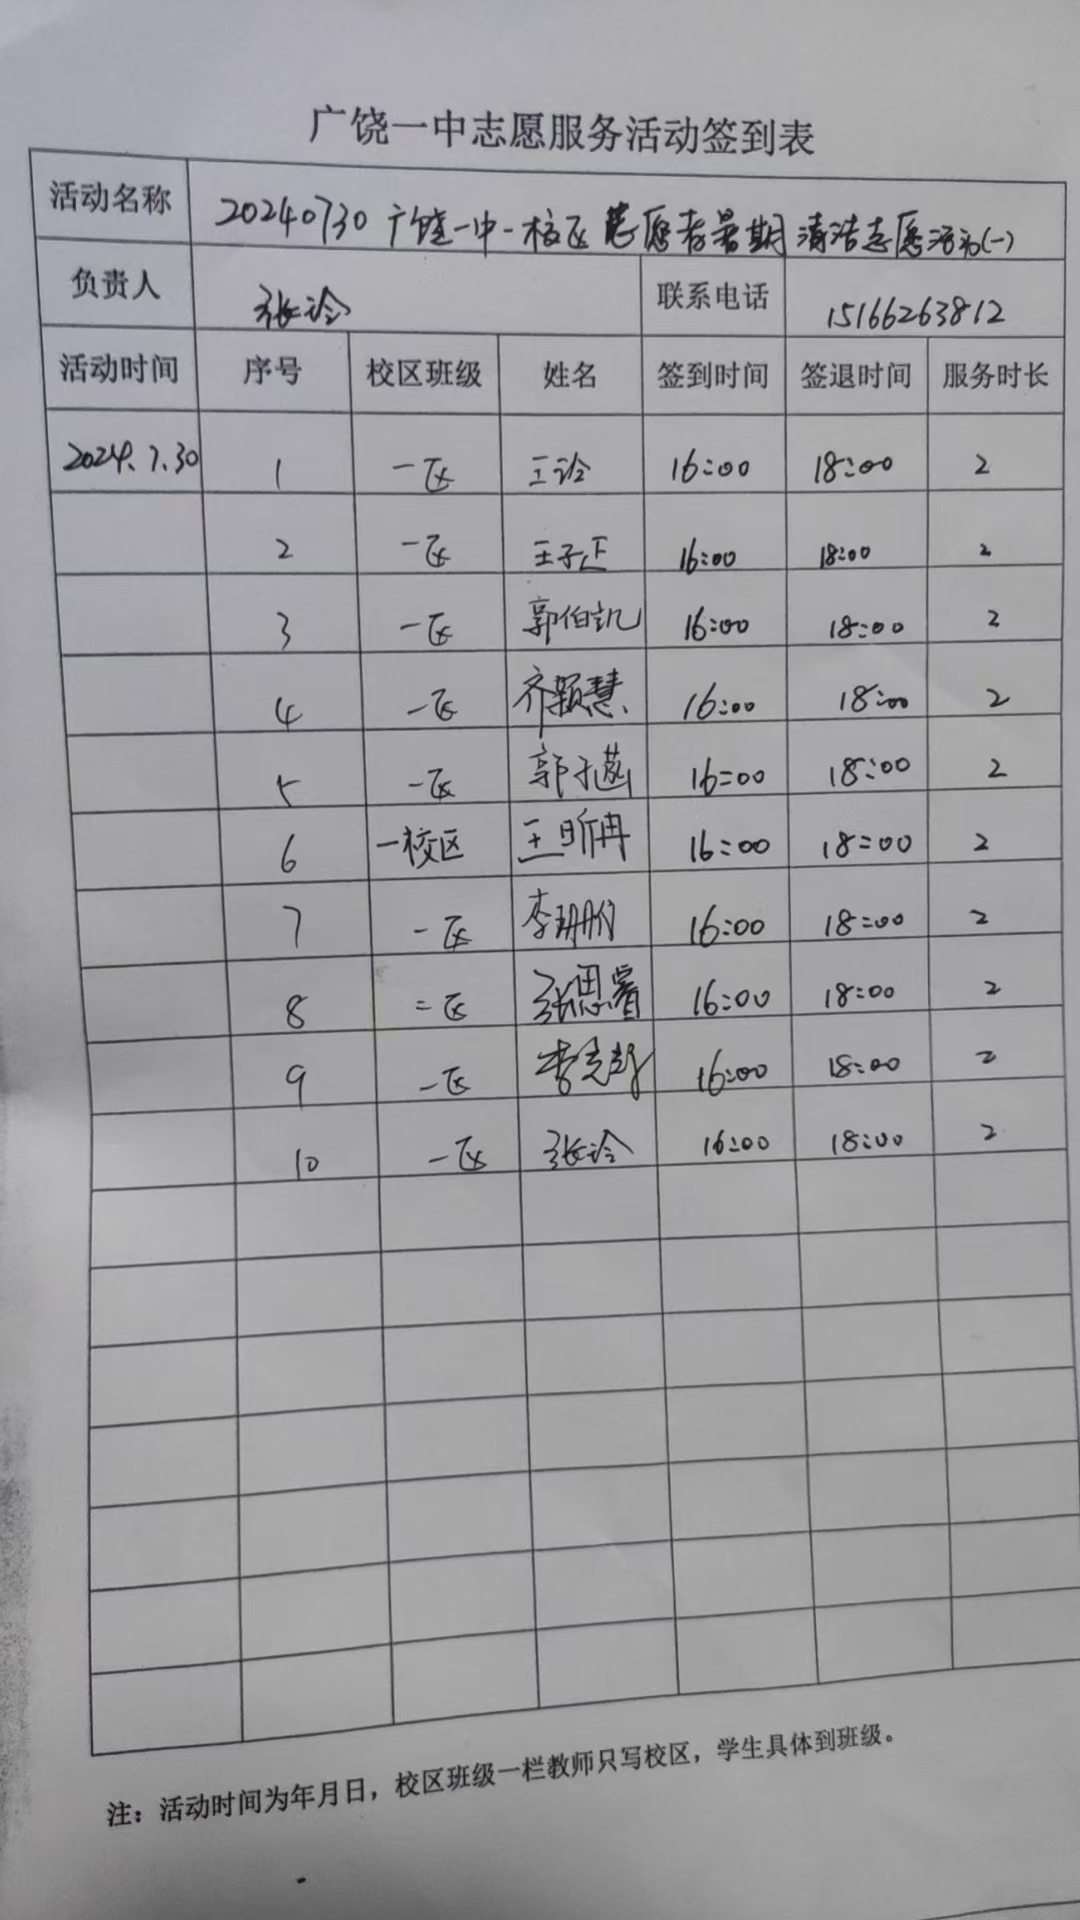 广饶一中志愿服务活动签到表
活动名称 20240730广饶一中一校区志愿者暑期清洁志愿活动(一)
负责人 张泠 联系电话 15166263812
活动时间 序号 校区班级 姓名 签到时间 签退时间 服务时长
2024.7.30 1 一区 王 16:00 18:00 2
2 一区 王子正 16:00 18:00 2
3 一区 郭伯凯 16:00 18:00 2
4 一区 齐颖慧 16:00 18:00 2
5 一区 郭子菡 16:00 18:00 2
6 一校区 王昕冉 16:00 18:00 2
7 一区 李 16:00 18:00 2
8 二区 张恩睿 16:00 18:00 2
9 一区 李 16:00 18:00 2
10 一区 张泠 16:00 18:00 2
注：活动时间为年月日，校区班级一栏教师只写校区，学生具体到班级。